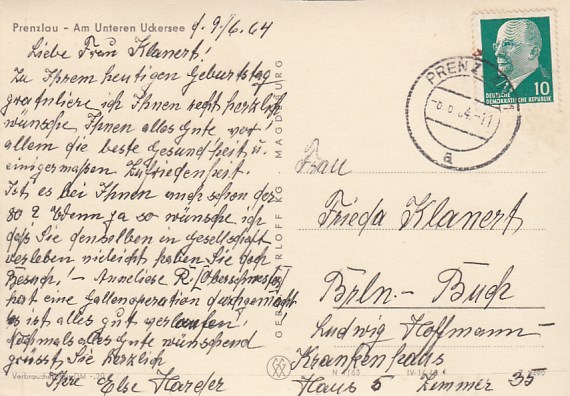 Prenzlau - Am Unteren Uckersee
d. 9./6.64
Liebe Frau Klanert!
Zu Ihrem heutigen Geburtstag
gratuliere ich Ihnen recht herzlich
wünsche Ihnen alles Gute vor
allem die beste Gesundheit u.
einigermaßen Zufriedenheit.
Ist es bei Ihnen auch schon der
80? Wenn ja so wünsche ich
daß Sie denselben in Gesellschaft
verleben vieleicht haben Sie doch
Besuch! - Anneliese R. (Oberschwester)
hat eine Gallenoperation durchgemacht
es ist alles gut verlaufen!
Nochmals alles Gute wünschend
grüsst Sie herzlich
Ihre Else Harder
Verbraucherpreis DM -,20
GEBR. GARLOFF KG. MAGDEBURG
PRENZLAU
-8.6.64.-11
a
10
DEUTSCHE
DEMOKRATISCHE REPUBLIK
Frau
Frieda Klanert
Brln.- Buch
Ludwig Hoffmann-
Krankenhaus
Haus 5 Zimmer 35